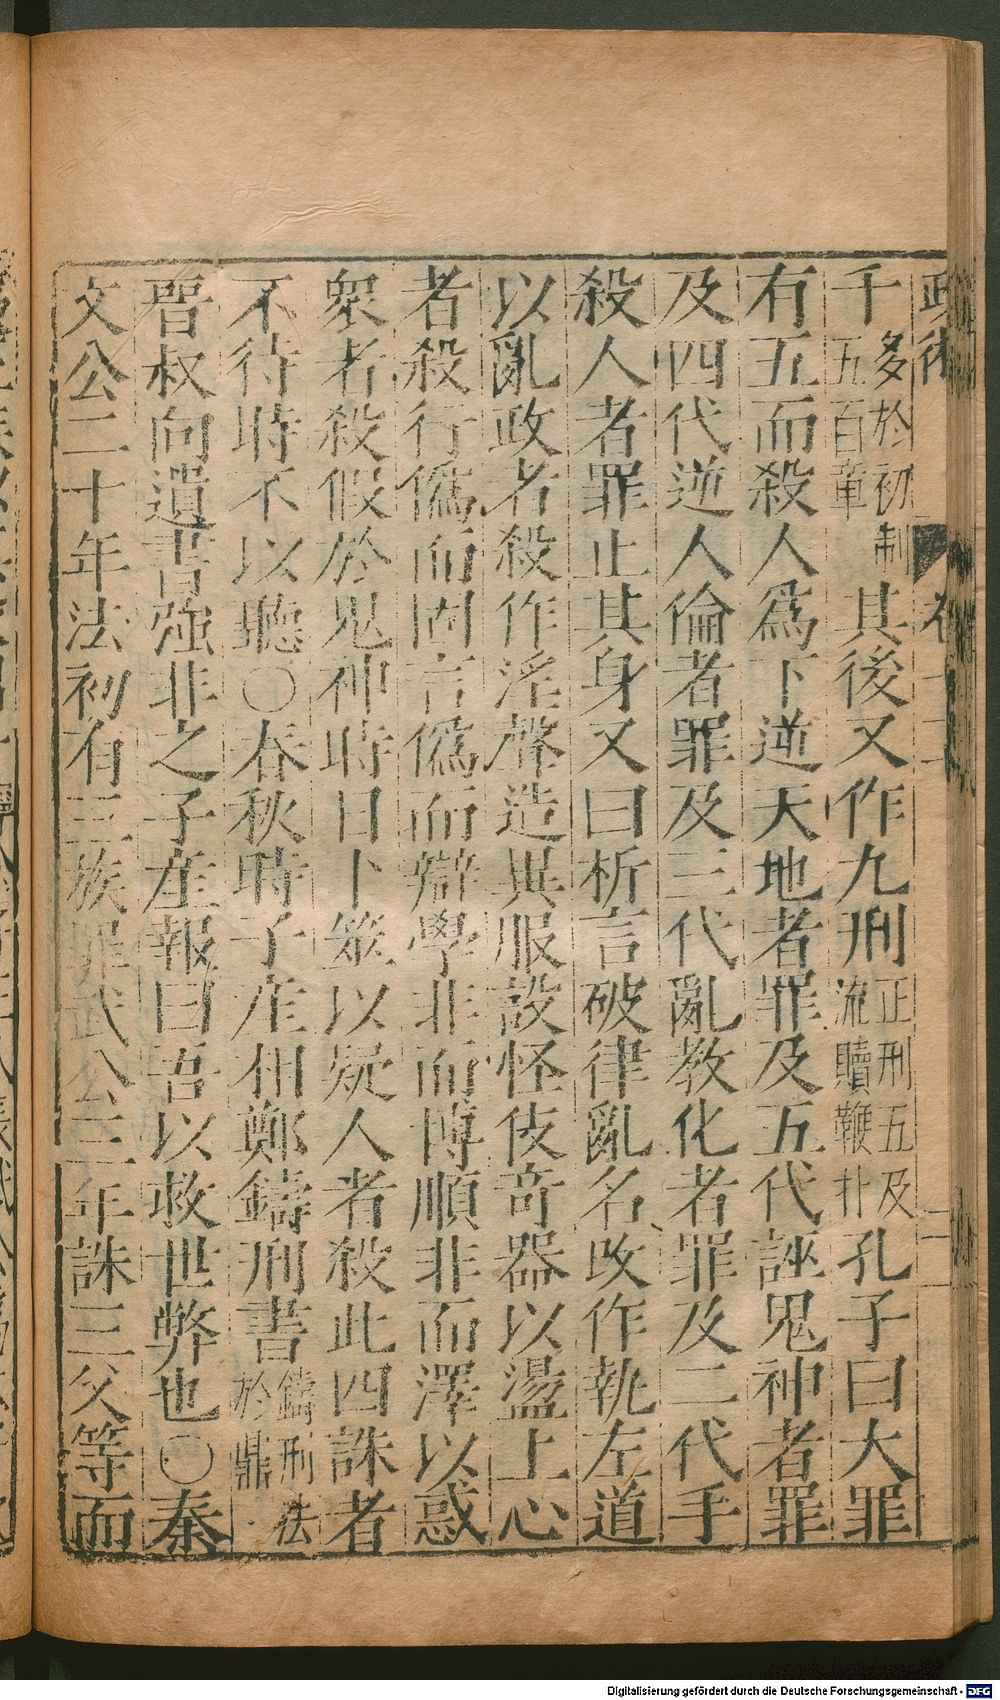 千多於初制五百章其後又作九刑正刑五及流贖鞭朴孔子曰大罪
有五而殺人爲下逆天地者罪及五代誣鬼神者罪
及四代逆人倫者罪及三代亂教化者罪及二代手
殺人者罪止其身又曰析言破律亂名改作執左道
以亂政者殺作淫聲造異服設怪伎奇器以盪上心
者殺行僞而固言僞而辯學非而博順非而澤以惑
衆者殺假於鬼神時日卜筮以疑人者殺此四誅者
不待時不以聽○春秋時子產相鄭鑄刑書鑄刑法於鼎
晉叔向遺書強非之子產報曰吾以救世弊也○秦
文公二十年法初有三族罪武公三年誅三父等而
Digitalisierung gefördert durch die Deutsche Forschungsgemeinschaft - DFG